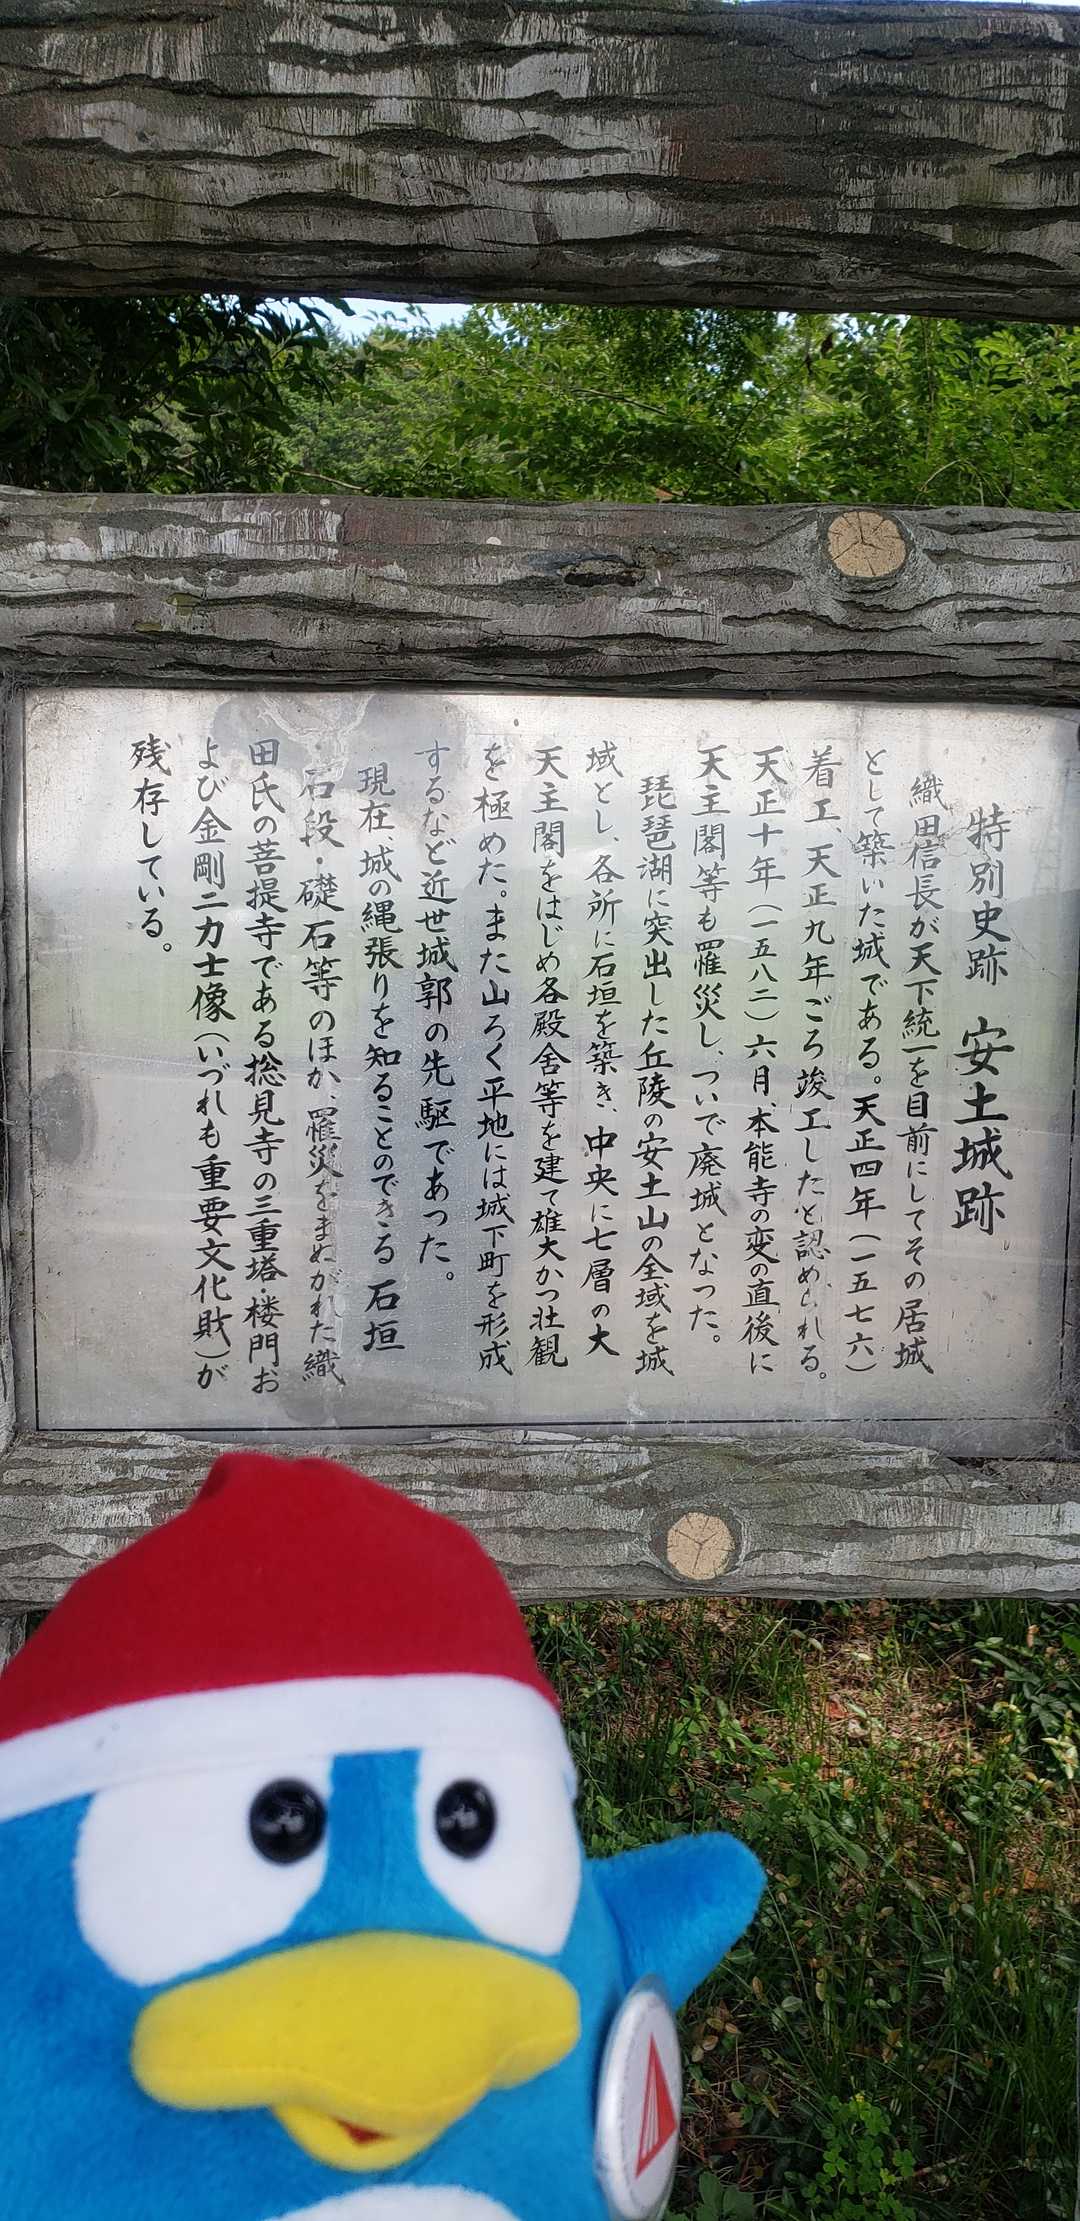 特別史跡　安土城跡
織田信長が天下統一を目前にしてその居城
として築いた城である。天正四年（一五七六）
着工、天正九年ごろ竣工したと認められる。
天正十年（一五八二）六月、本能寺の変の直後に
天主閣等も罹災し、ついで廃城となった。
琵琶湖に突出した丘陵の安土山の全域を城
域とし、各所に石垣を築き、中央に七層の大
天主閣をはじめ各殿舎等を建て雄大かつ壮観
を極めた。また山ろく平地には城下町を形成
するなど近世城郭の先駆であった。
現在、城の縄張りを知ることのできる石垣
・石段・礎石等のほか、罹災をまぬがれた織
田氏の菩提寺である摠見寺の三重塔・楼門お
よび金剛二力士像（いづれも重要文化財）が
残存している。